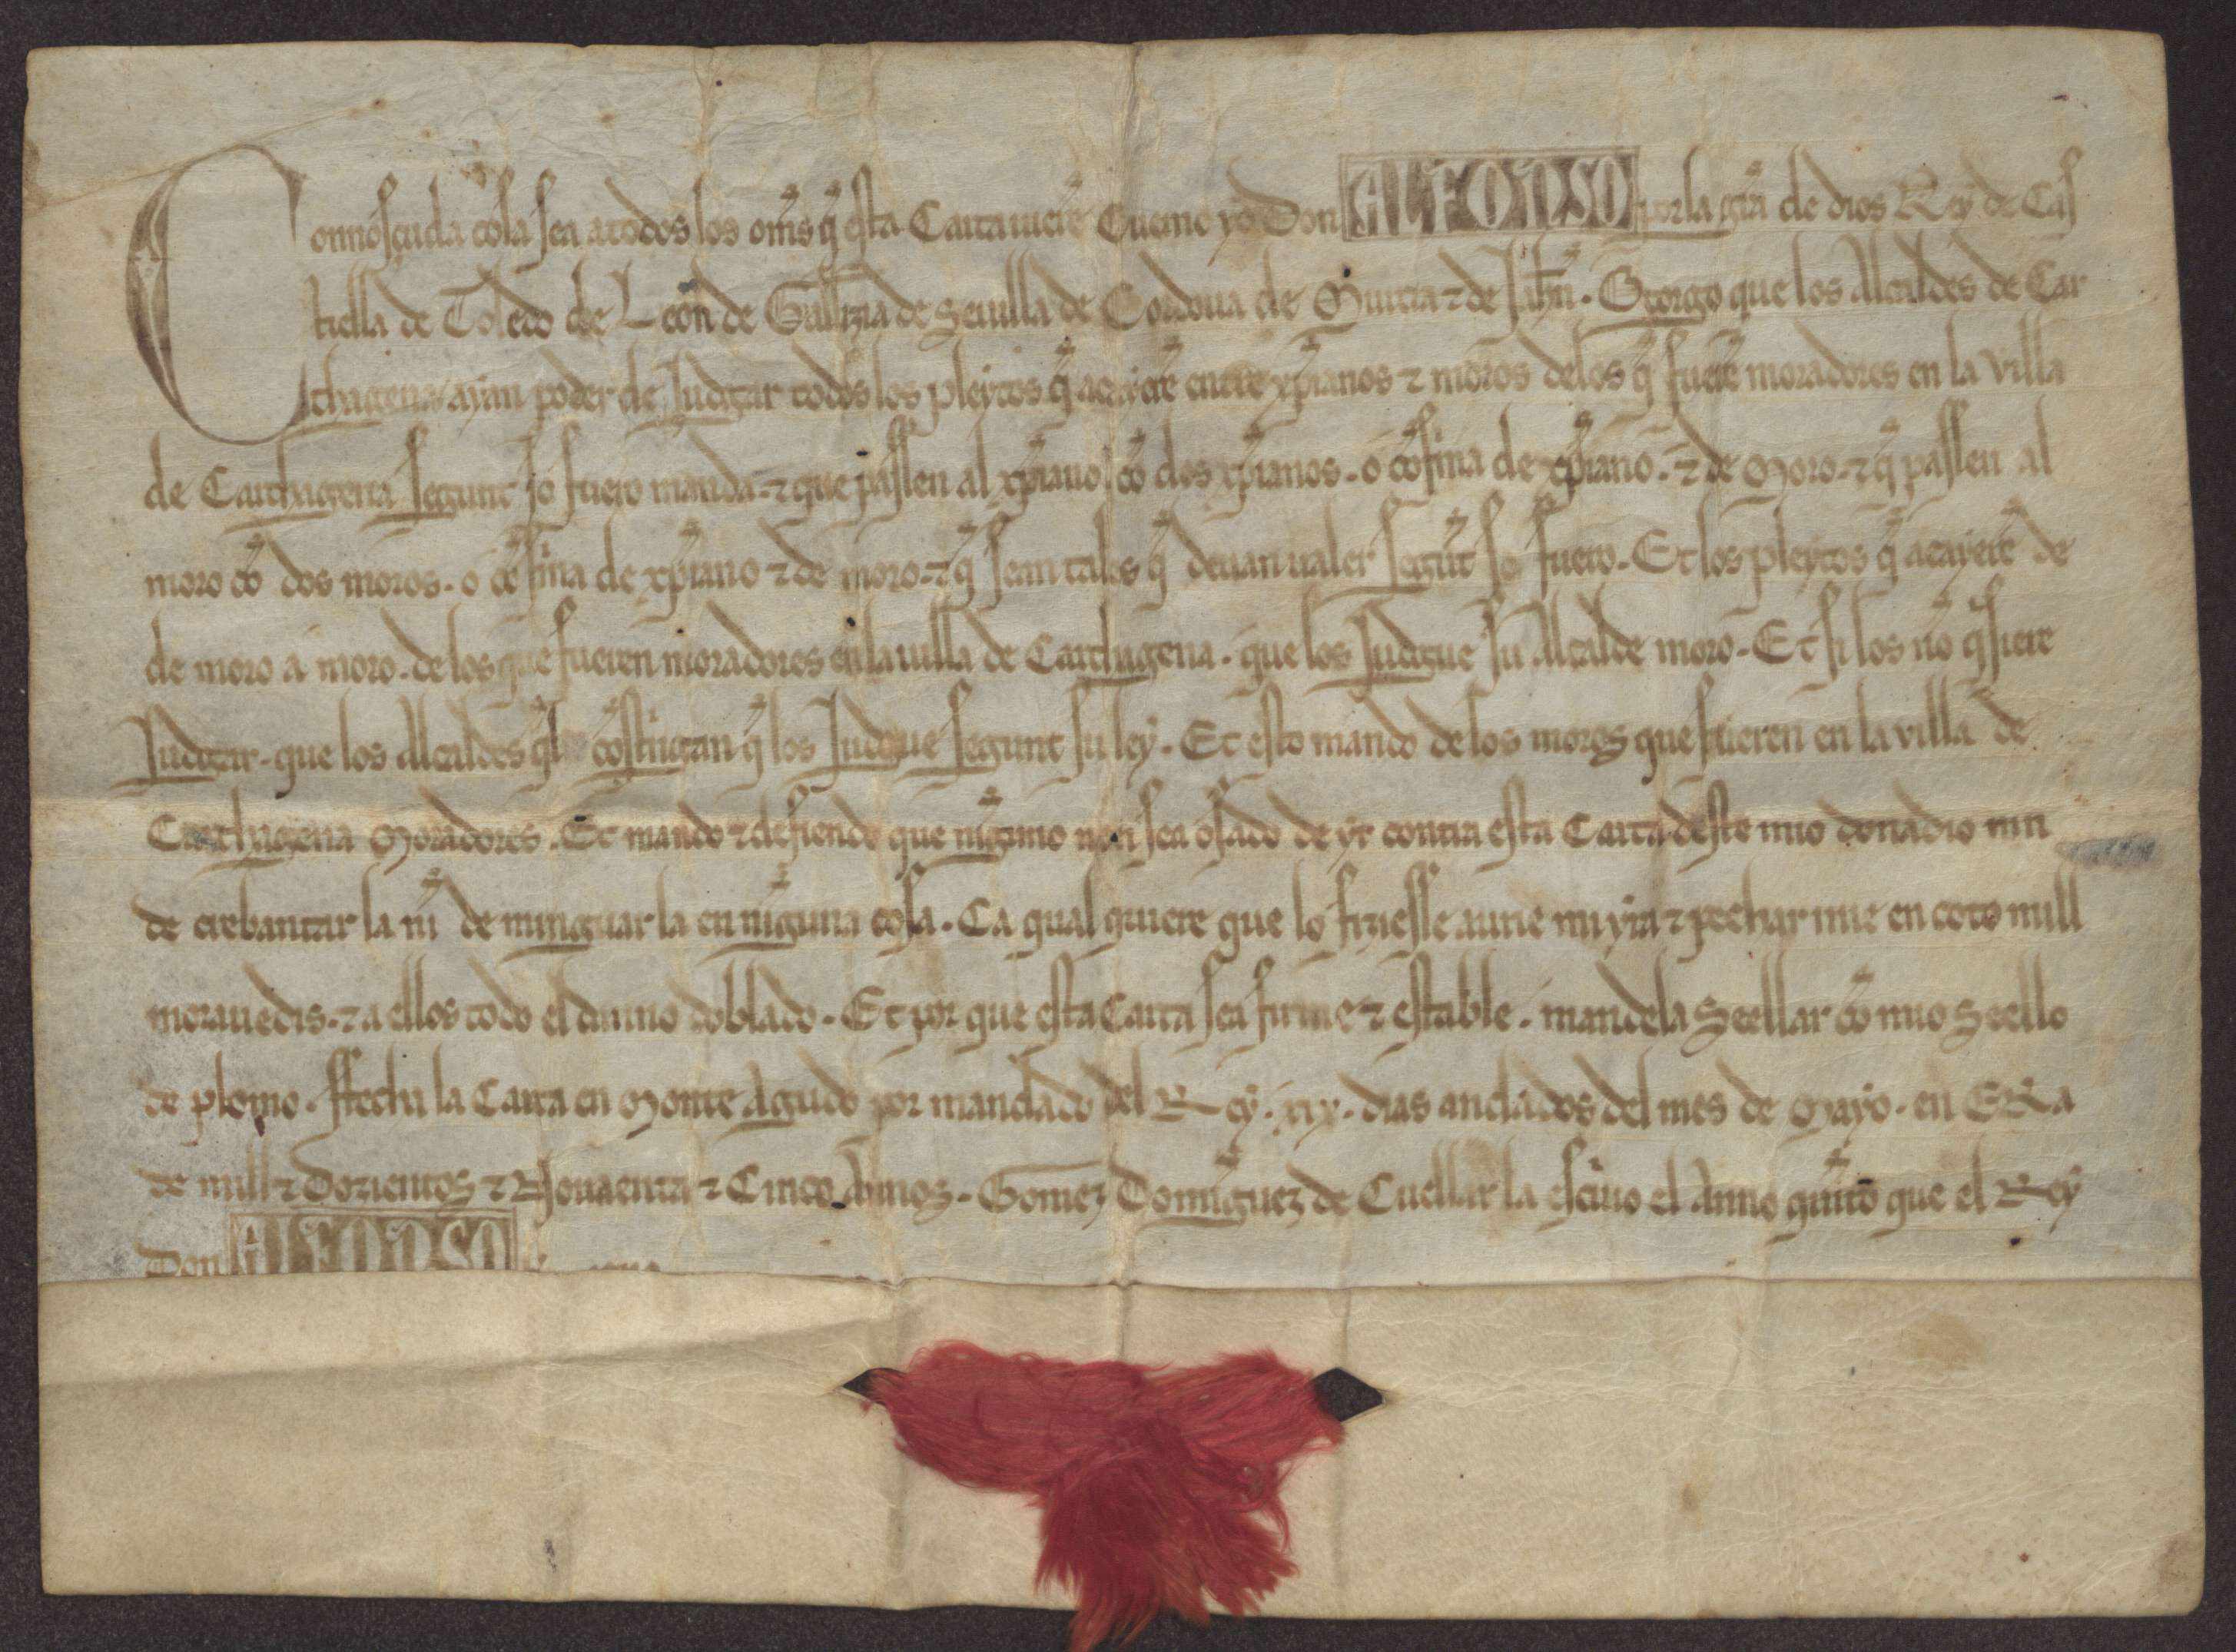 Connosçuda cosa sea a todos los om̃s q̃ esta Carta uierẽ Cuemo yo Don ALFONSO por la grã de dios Rey de Cas
tiella de Toledo de Leon de Gallizia de Seuilla de Cordoua de Murcia ⁊ de Jahẽn. Otorgo que los Alcaldes de Car
thagena ayan poder de Judgar todos los pleytos q̃ acayerẽ entre xp̃ianos ⁊ moros delos q̃ fuerẽ moradores en la villa
de Carthagena segunt so fuero manda. ⁊ que passen al xp̃iano cõ dos xp̃ianos. o cõ firma de xp̃iano. ⁊ de Moro. ⁊ q̃ passen al
moro cõ dos moros. o cõ firma de xp̃iano ⁊ de moro. ⁊ q̃ sean tales q̃ deuan ualer segũt so fuero. Et los pleytos q̃ acayerẽ de
de moro a moro. de los que fueren moradores en la uilla de Carthagena. que los Judgue su Alcalde moro. Et si los nõ q̃siere
Judgar. que los Alcaldes q̃l costringan q̃ los Judgue segunt su ley. Et esto mando de los moros que fueren en la villa de
Carthagena Moradores. Et mando ⁊ defiendo que nĩguno non sea osado de yr contra esta Carta deste mio donadio nin
de crebantar la nĩ de minguar la en nĩguna cosa. Ca qual quiere que lo fiziesse aurie mi yra ⁊ pechar mie en coto mill
morauedis. ⁊ a ellos todo el danno doblado. Et por que esta Carta sea firme ⁊ estable. mandela Seellar cõ mio Seello
de plomo. ffecha la Carta en Monte Agudo por mandado del Rey. xix. dias andados del mes de Mayo. en ERa
de mill ⁊ Dozientos ⁊ Nouaenta ⁊ Cinco Annos. Gomez Domĩguez de Cuellar la escriuo el Anno quĩto que el Rey
Don ALFONSO